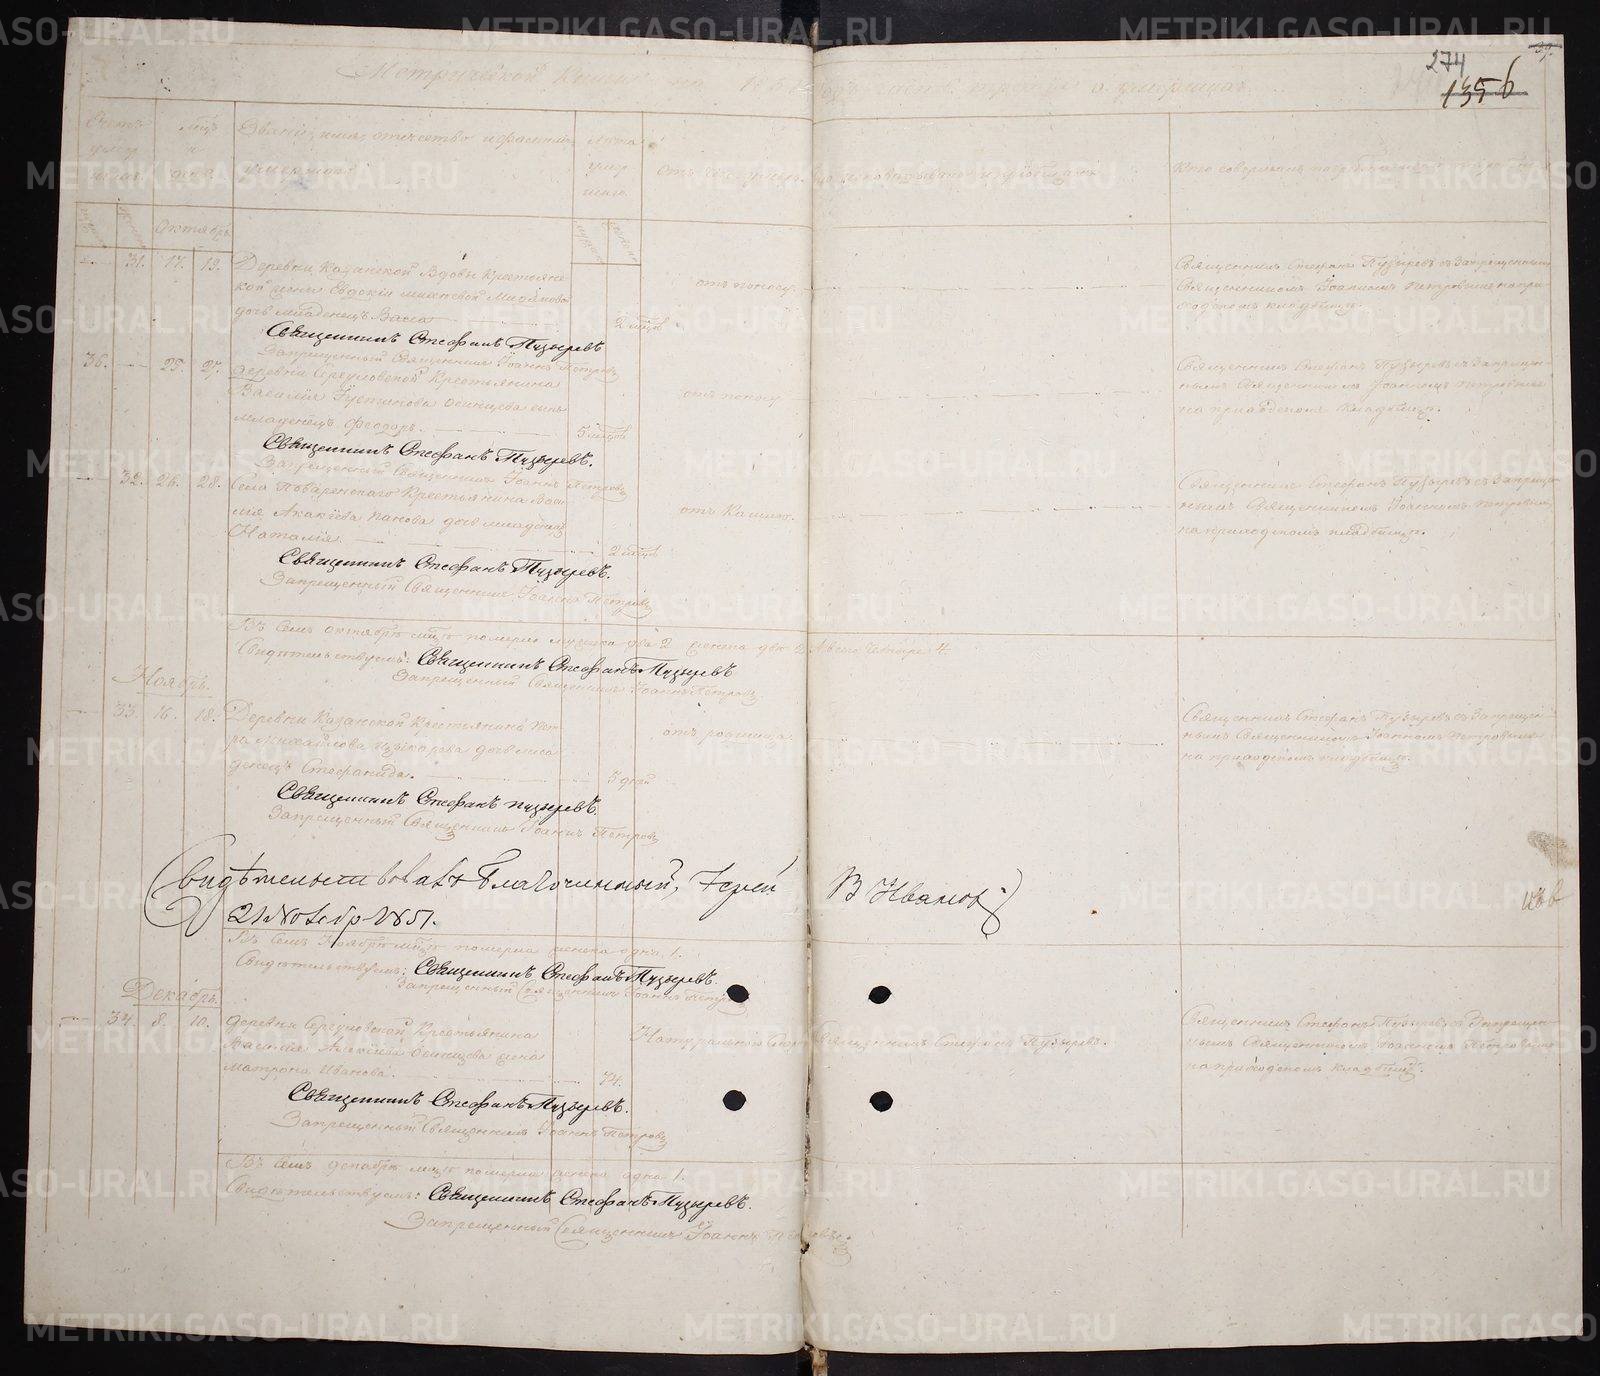 METRIKI.GASO-URAL.RU
274
135 б
Метрической Книги на 185 годъ часть третія о умершихъ
Счетъ умершихъ
Мѣсяцъ и день
Званіе, имя, отчество и фамилія умершаго
Лѣта умершаго
отъ чего умеръ
Кто исповѣдывалъ и пріобщалъ
Кто совершалъ погребеніе и гдѣ
Октябрь
31. 17. 19. Деревни Казанской Вдовы Крестьянской жены Евдокіи
дочь младенецъ Васса
2 мѣсц.
отъ поносу.
Священникъ Стефанъ Пузыревъ съ Запрещеннымъ
Священникомъ Іоанномъ Петровымъ на приходскомъ кладбищѣ.
Священникъ Стефанъ Пузыревъ
Запрещенный Священникъ Іоаннъ Петровъ
36. 25. 27. Деревни Крестьянина
Василія Устинова Осинцева сынъ
младенецъ Феодоръ.
5 мѣсцовъ
отъ поносу
Священникъ Стефанъ Пузыревъ съ Запрещеннымъ
Священникомъ Іоанномъ Петровымъ
на приходскомъ Кладбищѣ.
Священникъ Стефанъ Пузыревъ.
Запрещенный Священникъ Іоаннъ Петровъ
32. 26. 28. Села Крестьянина Василія
Акакіева Панова дочь младенецъ
Наталія.
2 мѣсц.
отъ Кашлю.
Священникъ Стефанъ Пузыревъ съ Запрещеннымъ
Священникомъ Іоанномъ Петровымъ
на приходскомъ кладбищѣ.
Священникъ Стефанъ Пузыревъ.
Запрещенный Священникъ Іоаннъ Петровъ
Въ семъ октябрѣ мѣсцѣ померло мужеска два 2 женска два 2 Всего Четыре 4.
Свидѣтельствуемъ: Священникъ Стефанъ Пузыревъ
Запрещенный Священникъ Іоаннъ Петровъ
Ноябрь.
33. 16. 18. Деревни Казанской Крестьянина Петра
Михайлова дочь младенецъ
Стефанида.
5 дней
отъ родимца.
Священникъ Стефанъ Пузыревъ съ Запрещеннымъ
Священникомъ Іоанномъ Петровымъ
на приходскомъ кладбищѣ.
Священникъ Стефанъ Пузыревъ.
Запрещенный Священникъ Іоаннъ Петровъ
Свидѣтельствовалъ Благочинный, Іерей В Ивановъ
21 Ноября 1851.
Въ семъ Ноябрѣ мѣсцѣ померла женска одна 1.
Свидѣтельствуемъ: Священникъ Стефанъ Пузыревъ.
Запрещенный Священникъ Іоаннъ Петровъ
Декабрь.
34. 8. 10. Деревни Крестьянина
Василія Алексіева Осинцова жена
Матрона Иванова.
74.
Натуральной Священникъ Стефанъ Пузыревъ.
Священникъ Стефанъ Пузыревъ съ Запрещеннымъ
Священникомъ Іоанномъ Петровымъ
на приходскомъ кладбищѣ.
Священникъ Стефанъ Пузыревъ.
Запрещенный Священникъ Іоаннъ Петровъ
Въ семъ декабрѣ мѣсцѣ померла женска одна 1.
Свидѣтельствуемъ: Священникъ Стефанъ Пузыревъ.
Запрещенный Священникъ Іоаннъ Петровъ.